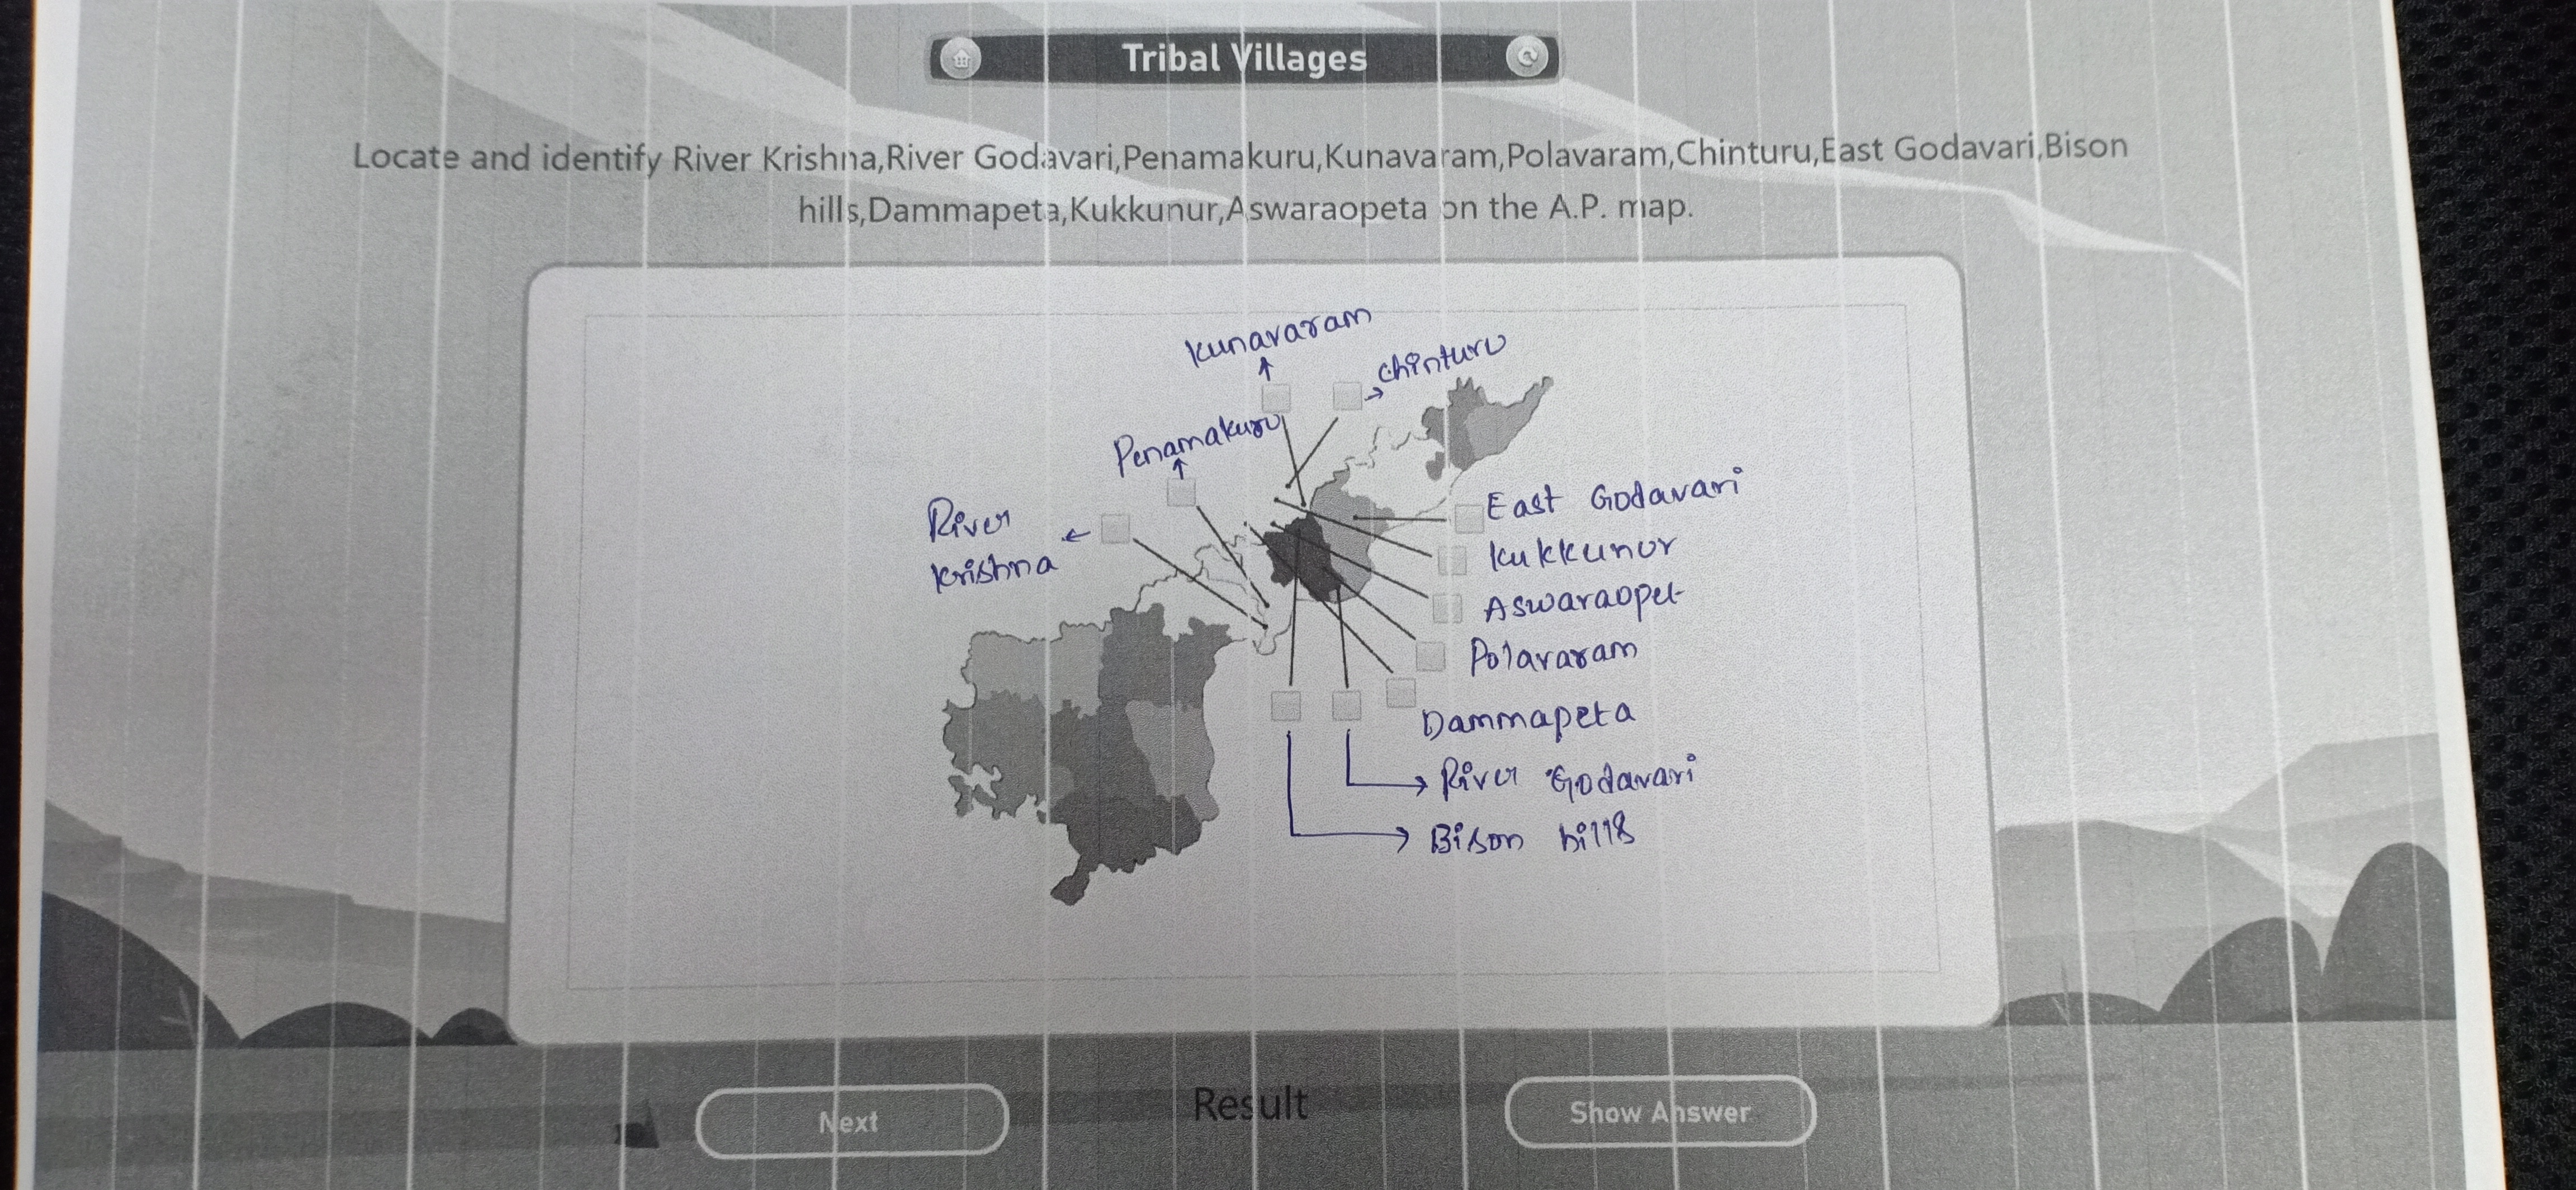 Tribal Villages
Locate and identify River Krishna,River Godavari,Penamakuru,Kunavaram,Polavaram,Chinturu,East Godavari,Bison
hills,Dammapeta,Kukkunur,Aswaraopeta on the A.P. map.
Kunavaram
Chinturu
Penamakuru
River
Krishna
East Godavari
Kukkunur
Aswaraopet
Polavaram
Dammapeta
River Godavari
Bison hills
Next
Result
Show Answer